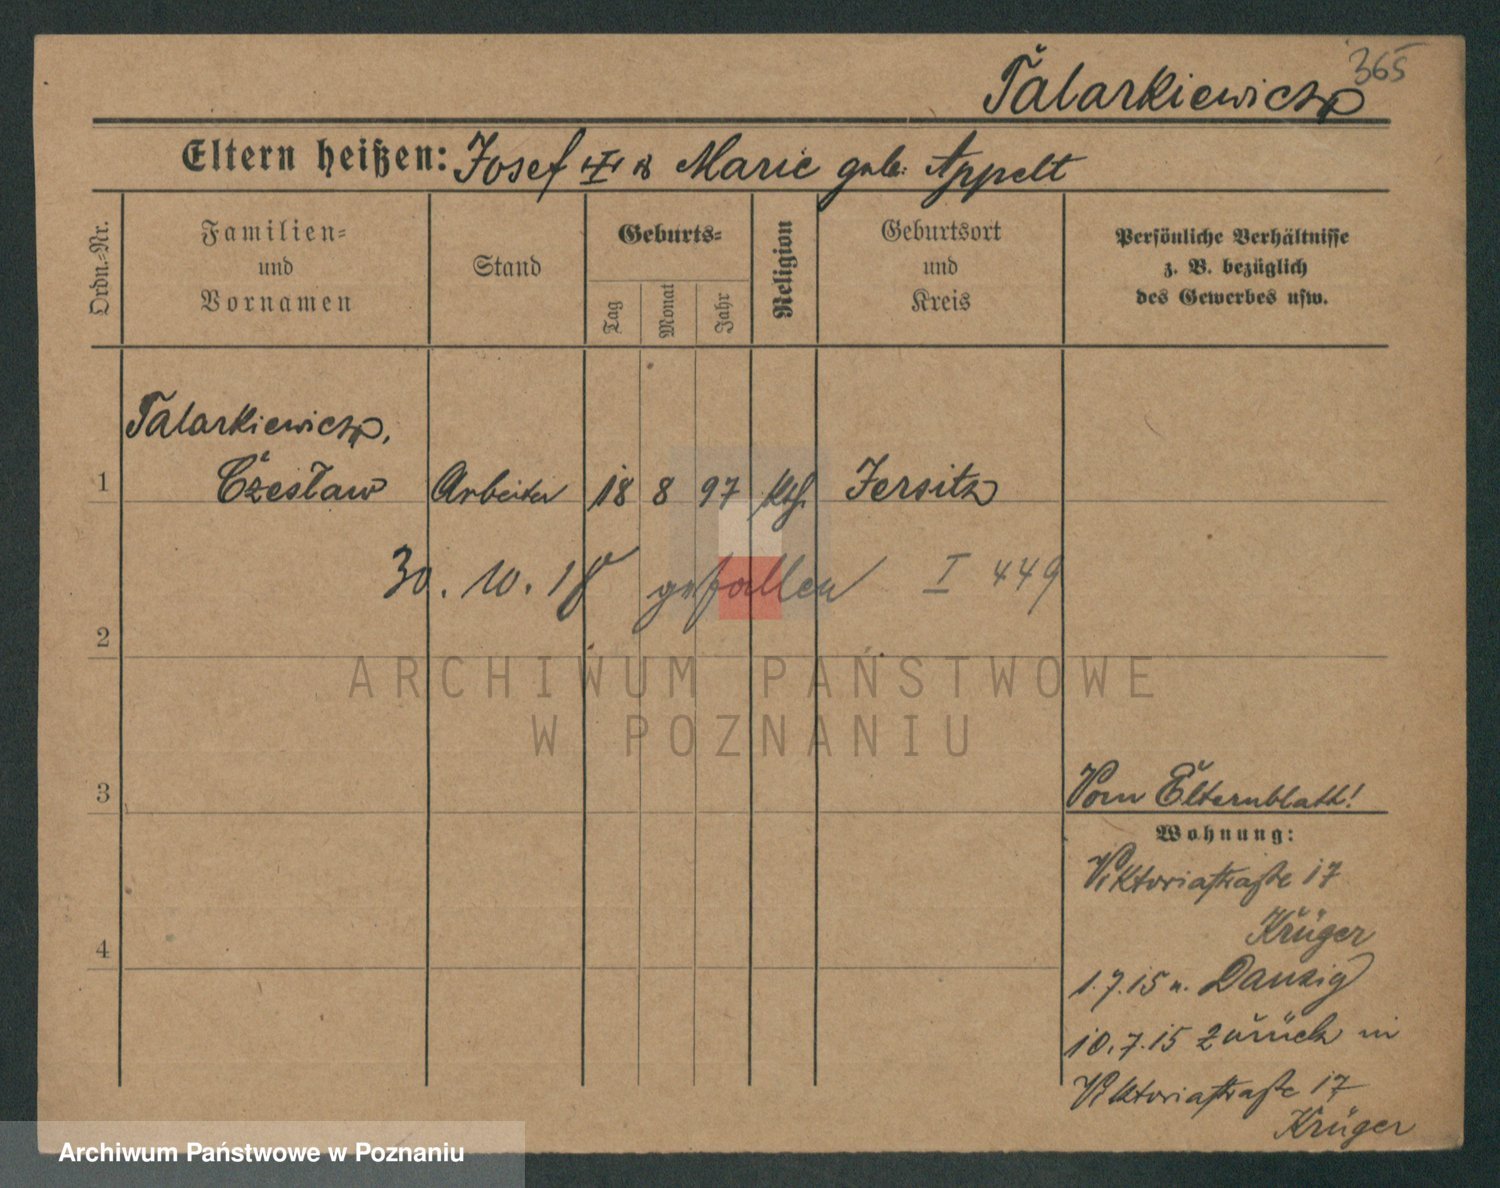 365
Talarkiewicz
Eltern heißen: Josef u Marie geb. Appelt
Ordn.-Nr.
Familien-
und
Vornamen
Stand
Geburts-
Tag
Monat
Jahr
Religion
Geburtsort
und
Kreis
Persönliche Verhältnisse
z. B. bezüglich
des Gewerbes usw.
Talarkiewicz,
1 Czesław Arbeiter 18 8 97 kth. Jersitz
30. 10. 18 gefallen I 449
2
ARCHIWUM PAŃSTWOWE
W POZNANIU
3
4
Vom Elternblatt!
Wohnung:
Viktoriastraße 17
Krüger
1.7.15 n. Danzig
10.7.15 zurück in
Viktoriastraße 17
Krüger
Archiwum Państwowe w Poznaniu